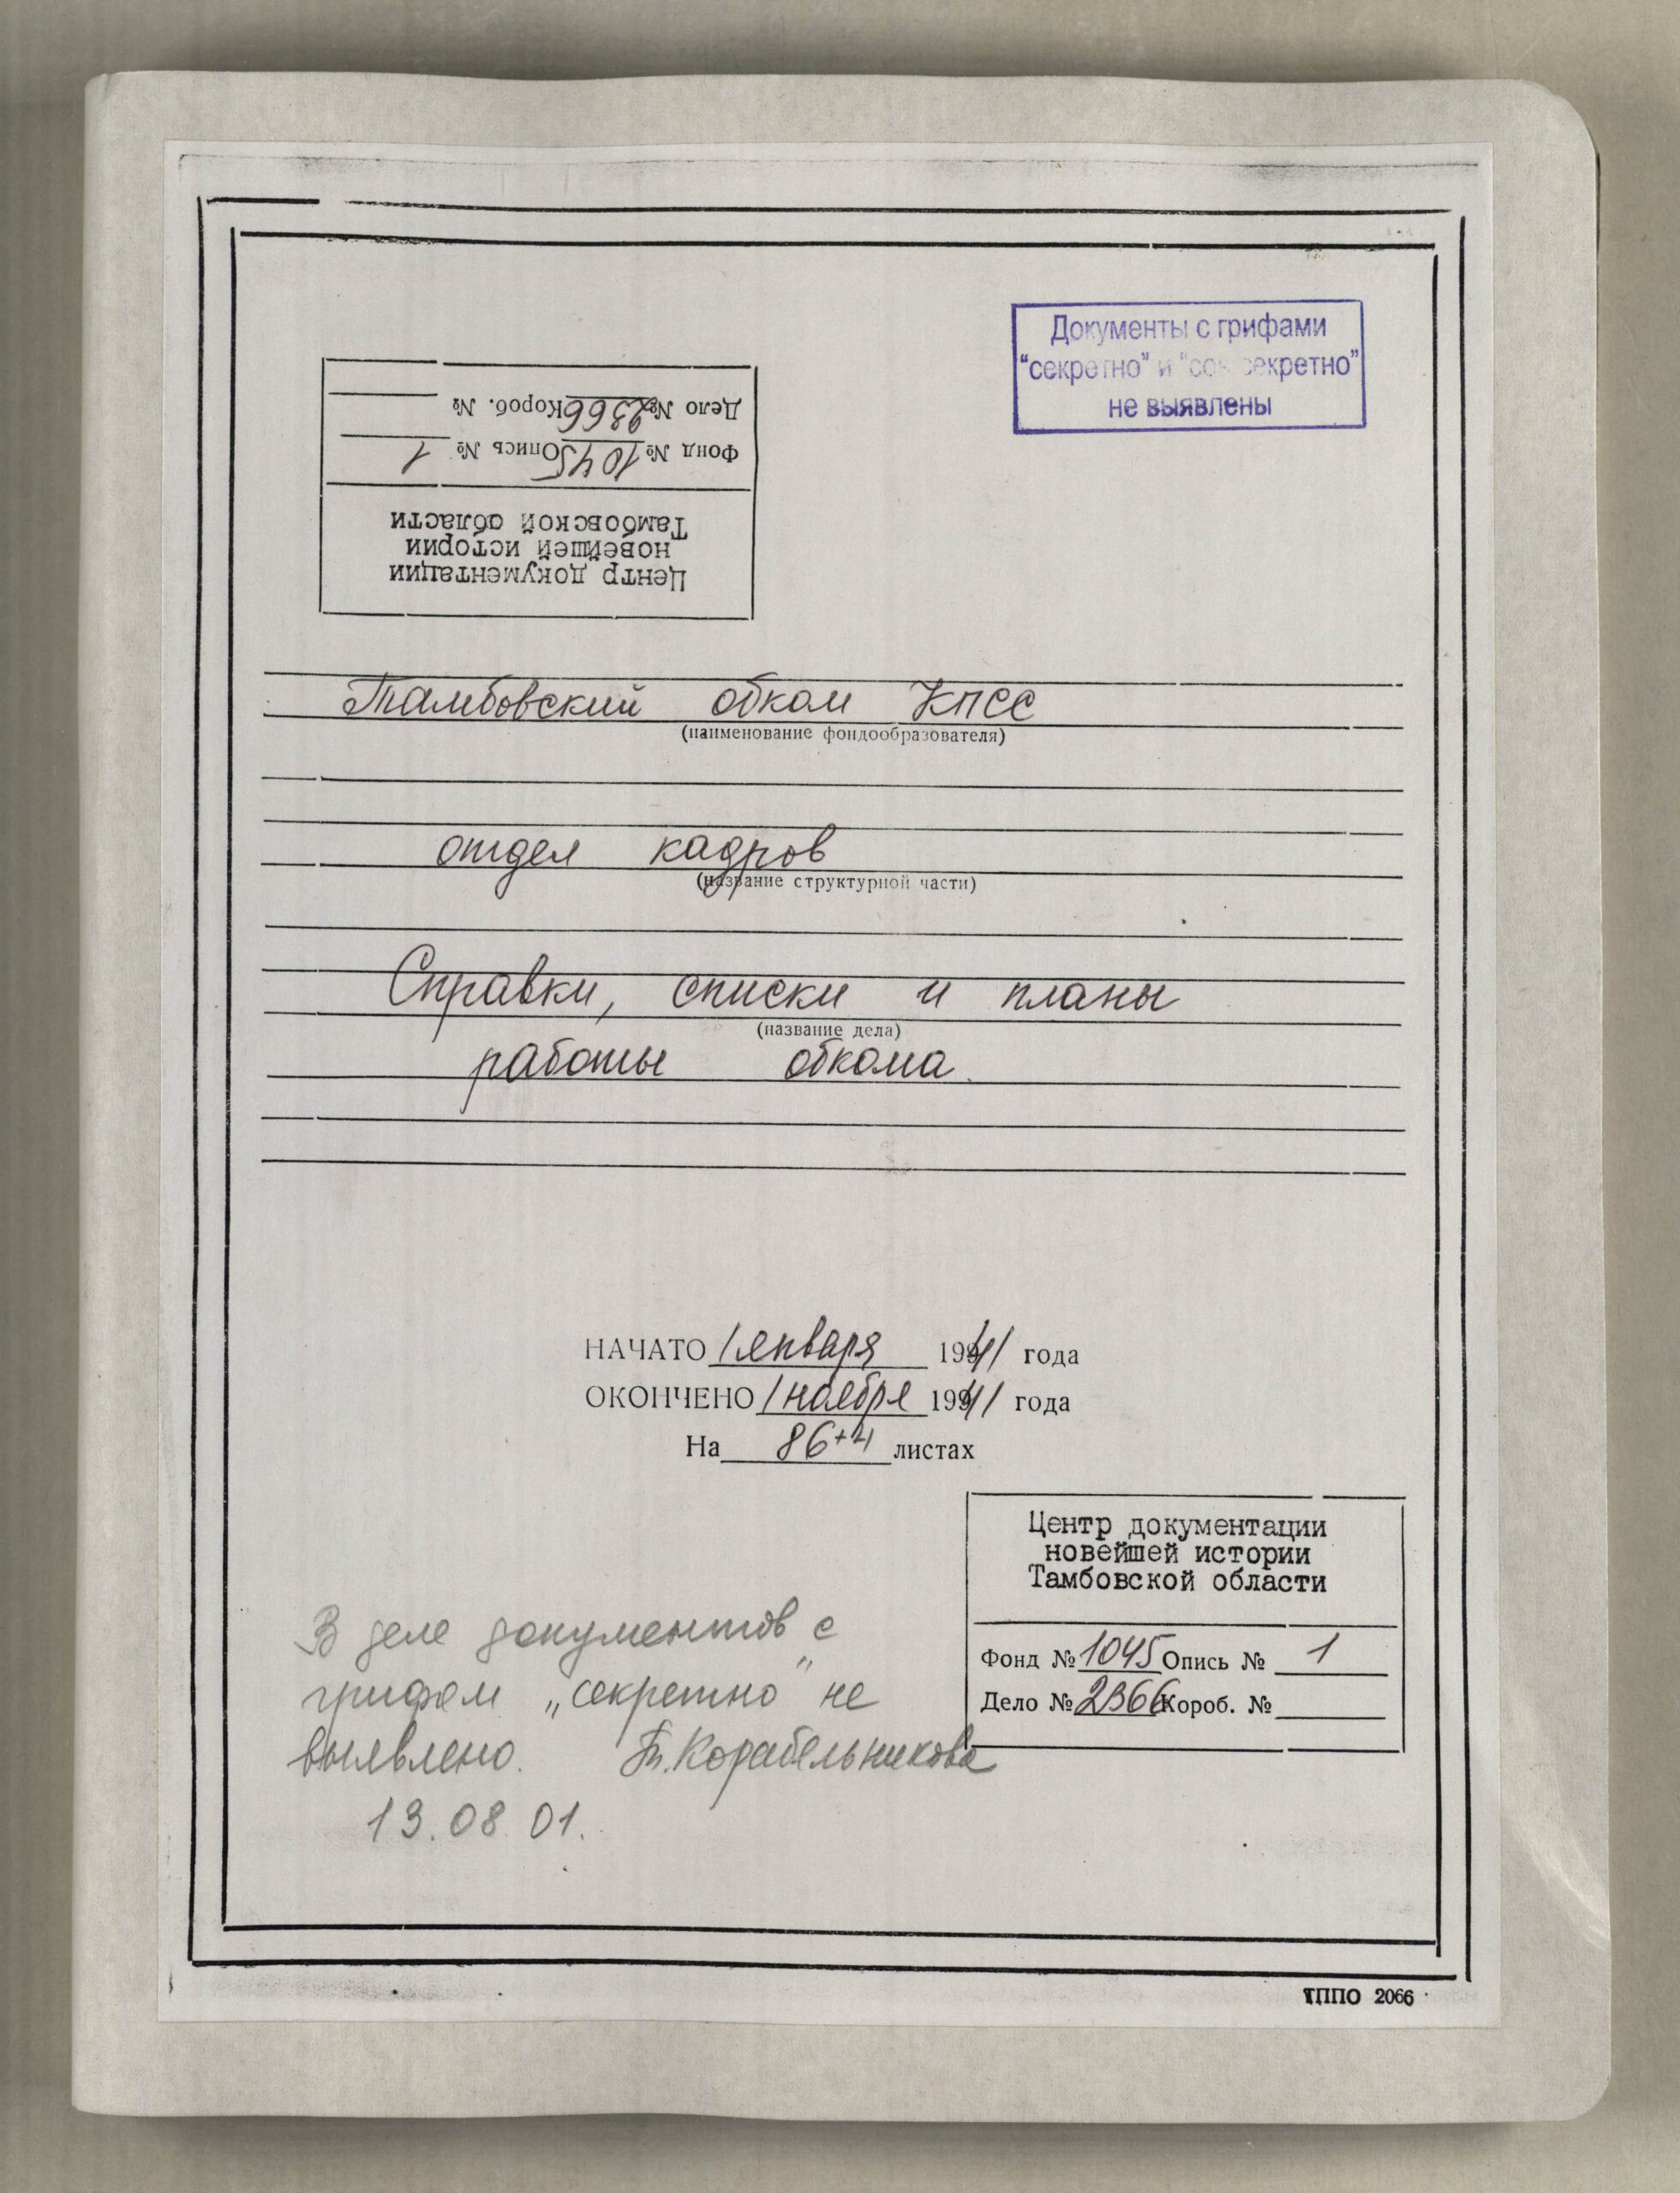 Документы с грифами
"секретно" и "сов секретно"
не выявлены
Центр документации
новейшей истории
Тамбовской области
Фонд № 1045 Опись № 1
Дело № 2366 Короб. №
Тамбовский обком КПСС
(наименование фондообразователя)
отдел кадров
(название структурной части)
Справки, списки и планы
(название дела)
работы обкома.
НАЧАТО 1 января 1941 года
ОКОНЧЕНО 1 ноября 1941 года
На 86+4 листах
Центр документации
новейшей истории
Тамбовской области
Фонд № 1045 Опись № 1
Дело № 2366 Короб. №
В деле документов с
грифом „секретно" не
выявлено. Т. Корабельникова
13.08.01.
ТППО 2066